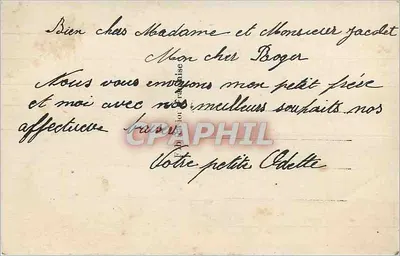 Bien chers Madame et Monsieur Jacolet
Mon cher Roger
Nous vous envoyons mon petit frère
et moi avec nos meilleurs souhaits nos
affectueux baisers
Votre petite Odette
CPAPHIL